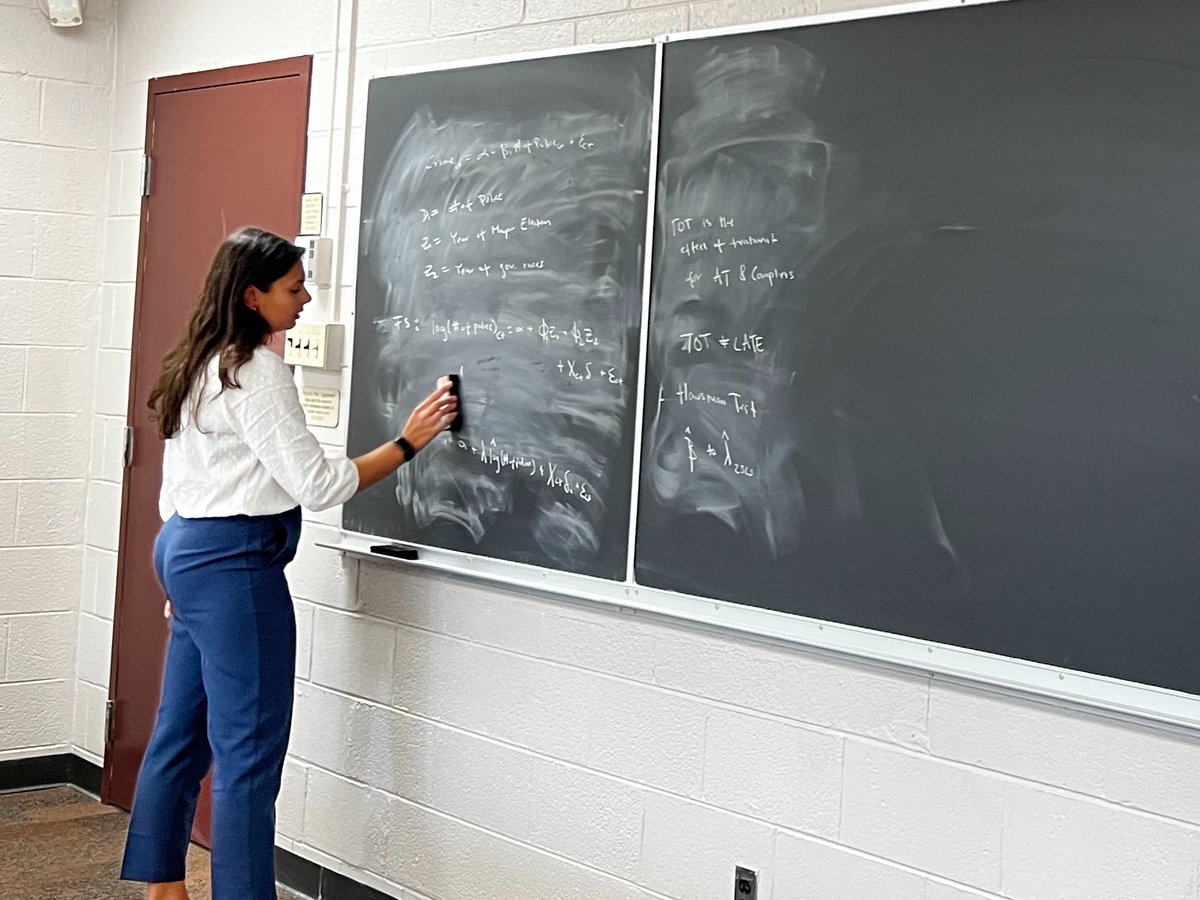 Crime_ct = α + β₁ # of Police_ct + ε_ct
D₁ = # of Police
Z₁ = Year of Mayor Election
Z₂ = Year of gov. races
FS: log(# of police)_ct = α + ϕZ₁ + ϕ₂Z₂
+ X_ct δ + ε_ct
= α + λ log(# of police) + X_ct δ + ε_ct
TOT is the
effect of treatment
for AT & Compliers
TOT ≠ LATE
Hausman Test
β̂ to λ̂ 2SLS